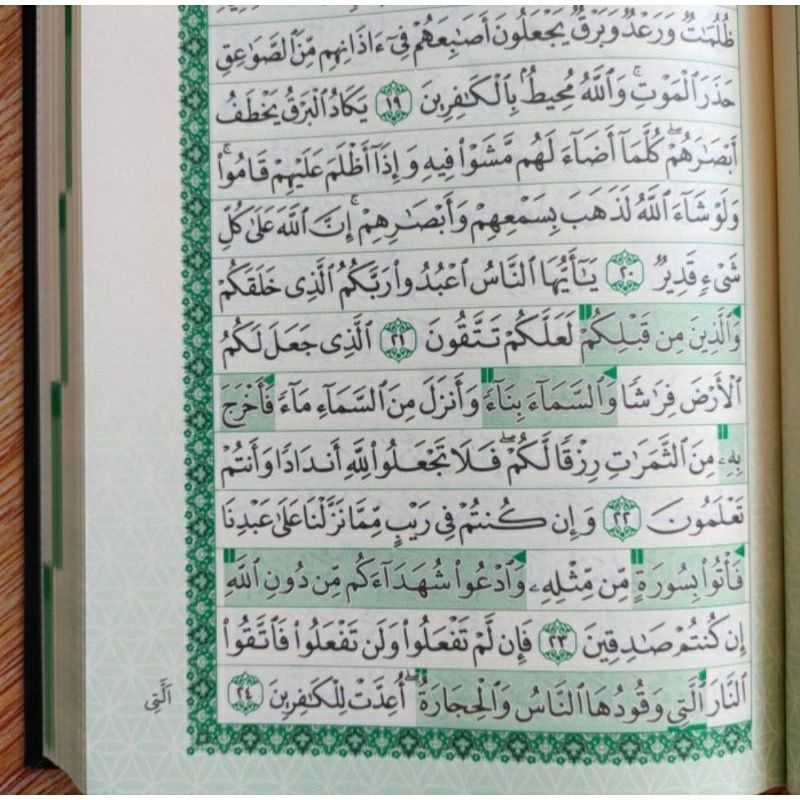 ظُلُمَـٰتٌ وَرَعْدٌ وَبَرْقٌ يَجْعَلُونَ أَصَـٰبِعَهُمْ فِىٓ ءَاذَانِهِم مِّنَ ٱلصَّوَٰعِقِ
حَذَرَ ٱلْمَوْتِ ۚ وَٱللَّهُ مُحِيطٌۢ بِٱلْكَـٰفِرِينَ ١٩ يَكَادُ ٱلْبَرْقُ يَخْطَفُ
أَبْصَـٰرَهُمْ ۖ كُلَّمَآ أَضَآءَ لَهُم مَّشَوْا۟ فِيهِ وَإِذَآ أَظْلَمَ عَلَيْهِمْ قَامُوا۟ ۚ
وَلَوْ شَآءَ ٱللَّهُ لَذَهَبَ بِسَمْعِهِمْ وَأَبْصَـٰرِهِمْ ۚ إِنَّ ٱللَّهَ عَلَىٰ كُلِّ
شَىْءٍ قَدِيرٌ ٢٠ يَـٰٓأَيُّهَا ٱلنَّاسُ ٱعْبُدُوا۟ رَبَّكُمُ ٱلَّذِى خَلَقَكُمْ
وَٱلَّذِينَ مِن قَبْلِكُمْ لَعَلَّكُمْ تَتَّقُونَ ٢١ ٱلَّذِى جَعَلَ لَكُمُ
ٱلْأَرْضَ فِرَٰشًا وَٱلسَّمَآءَ بِنَآءً وَأَنزَلَ مِنَ ٱلسَّمَآءِ مَآءً فَأَخْرَجَ
بِهِۦ مِنَ ٱلثَّمَرَٰتِ رِزْقًا لَّكُمْ ۖ فَلَا تَجْعَلُوا۟ لِلَّهِ أَندَادًا وَأَنتُمْ
تَعْلَمُونَ ٢٢ وَإِن كُنتُمْ فِى رَيْبٍ مِّمَّا نَزَّلْنَا عَلَىٰ عَبْدِنَا
فَأْتُوا۟ بِسُورَةٍ مِّن مِّثْلِهِۦ وَٱدْعُوا۟ شُهَدَآءَكُم مِّن دُونِ ٱللَّهِ
إِن كُنتُمْ صَـٰدِقِينَ ٢٣ فَإِن لَّمْ تَفْعَلُوا۟ وَلَن تَفْعَلُوا۟ فَٱتَّقُوا۟
ٱلنَّارَ ٱلَّتِى وَقُودُهَا ٱلنَّاسُ وَٱلْحِجَارَةُ ۖ أُعِدَّتْ لِلْكَـٰفِرِينَ ٢٤
ٱلَّتِى